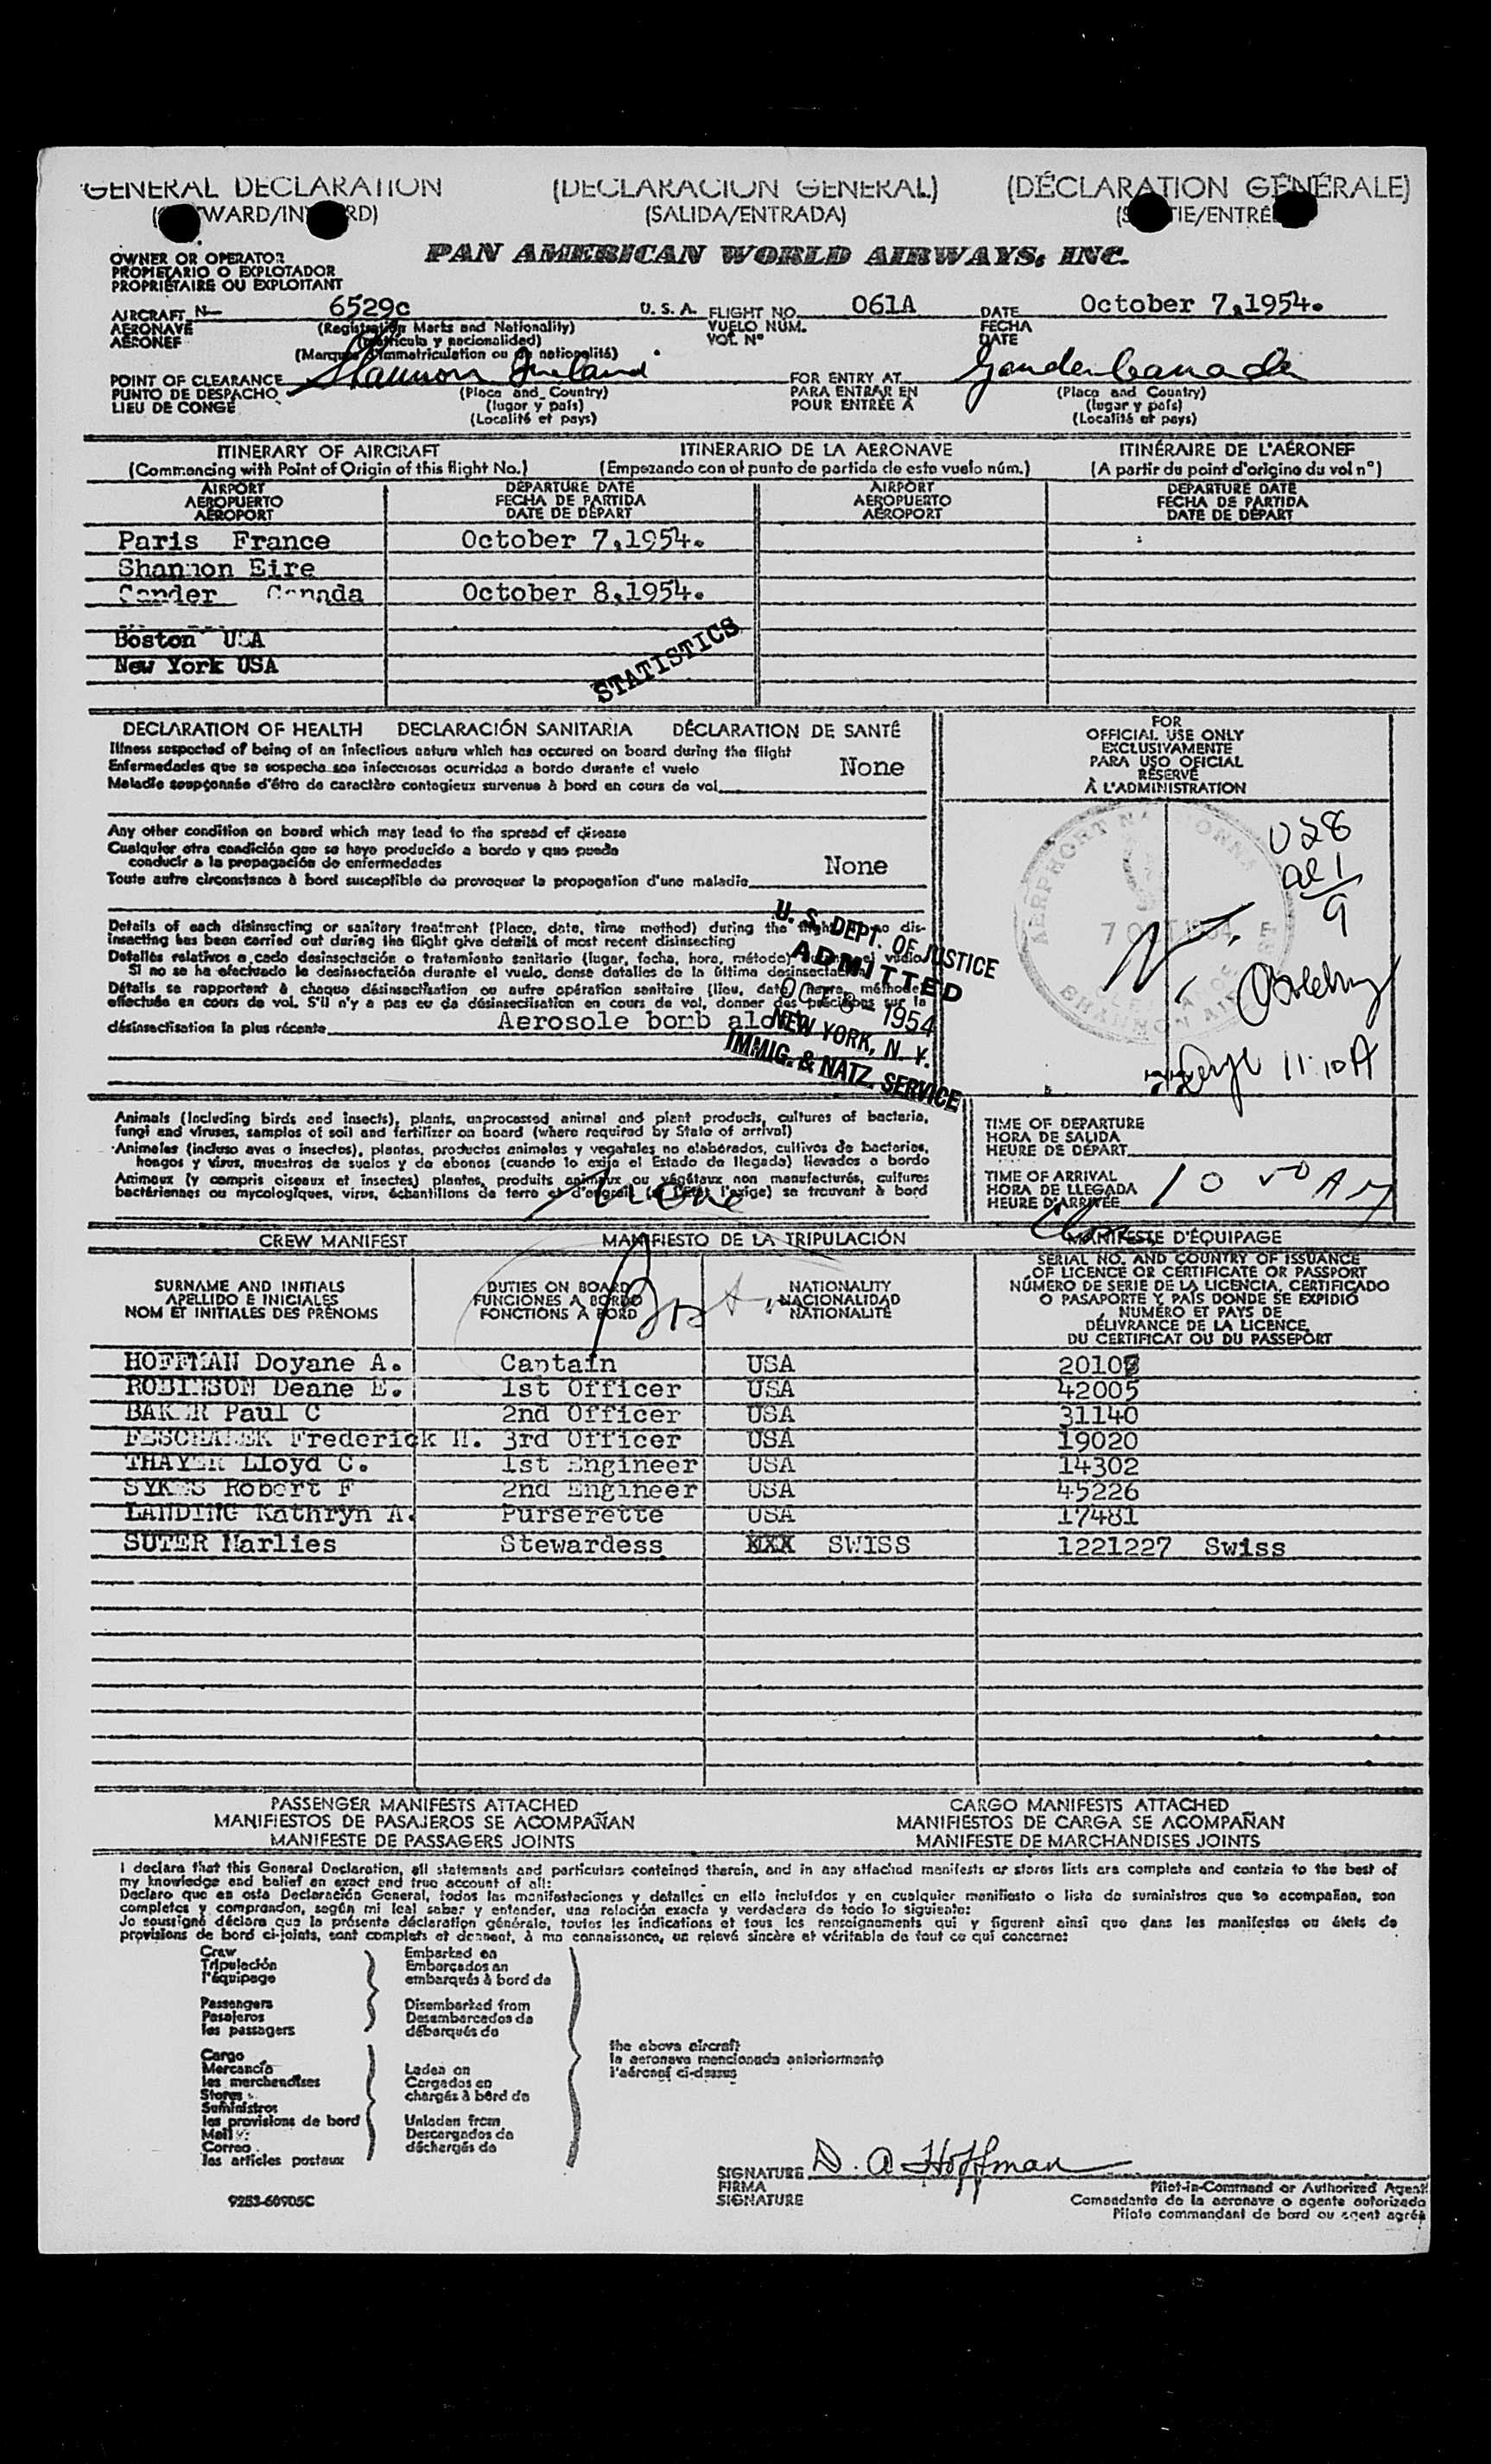 GENERAL DECLARATION (DECLARACION GENERAL) (DÉCLARATION GÉNÉRALE)
(SALIDA/ENTRADA)
OWNER OR OPERATOR
PROPIETARIO O EXPLOTADOR
PROPRIÉTAIRE OU EXPLOITANT
PAN AMERICAN WORLD AIRWAYS, INC.
AIRCRAFT N- 6529c U. S. A. FLIGHT NO. 061A DATE October 7,1954.
AERONAVE (Registration Marts and Nationality) VUELO NÚM. FECHA
AÉRONEF (Matrícula y nacionalidad) VOL Nº DATE
(Marques d'immatriculation ou de nationalité)
POINT OF CLEARANCE Shannon Ireland FOR ENTRY AT Gander Canada
PUNTO DE DESPACHO (Place and Country) PARA ENTRAR EN (Place and Country)
LIEU DE CONGÉ (lugar y país) POUR ENTRÉE À (lugar y país)
(Localité et pays) (Localité et pays)
ITINERARY OF AIRCRAFT ITINERARIO DE LA AERONAVE ITINÉRAIRE DE L'AÉRONEF
(Commencing with Point of Origin of this flight No.) (Empezando con el punto de partida de este vuelo núm.) (A partir du point d'origine du vol nº)
AIRPORT DEPARTURE DATE AIRPORT DEPARTURE DATE
AEROPUERTO FECHA DE PARTIDA AEROPUERTO FECHA DE PARTIDA
AÉROPORT DATE DE DÉPART AÉROPORT DATE DE DÉPART
Paris France October 7,1954.
Shannon Eire
Gander Canada October 8,1954.
Boston USA
New York USA
STATISTICS
DECLARATION OF HEALTH DECLARACIÓN SANITARIA DÉCLARATION DE SANTÉ
Illness suspected of being of an infectious nature which has occured on board during the flight
Enfermedades que se sospecha son infecciosas ocurridas a bordo durante el vuelo None
Maladie soupçonnée d'être de caractère contagieux survenue à bord en cours de vol
Any other condition on board which may lead to the spread of disease
Cualquier otra condición que se haya producido a bordo y que pueda
conducir a la propagación de enfermedades None
Toute autre circonstance à bord susceptible de provoquer la propagation d'une maladie
Details of each disinsecting or sanitary treatment (Place, date, time method) during the flight no dis-
insecting has been carried out during the flight give details of most recent disinsecting
Detalles relativos a cada desinsectación o tratamiento sanitario (lugar, fecha, hora, método) el vuelo
Si no se ha efectuado la desinsectación durante el vuelo, dense detalles de la última desinsectación
Détails se rapportant à chaque désinsectisation ou autre opération sanitaire (lieu, date, heure, méthode
effectuée en cours de vol. S'il n'y a pas eu de désinsectisation en cours de vol, donner des précisions sur la
désinsectisation la plus récente Aerosole bomb
U. S. DEPT. OF JUSTICE
ADMITTED
OCT 8 1954
NEW YORK, N. Y.
IMMIG. & NATZ. SERVICE
FOR
OFFICIAL USE ONLY
EXCLUSIVAMENTE
PARA USO OFICIAL
RÉSERVÉ
À L'ADMINISTRATION
U28
11:10 A
Animals (Including birds and insects), plants, unprocessed animal and plant products, cultures of bacteria,
fungi and viruses, samples of soil and fertilizer on board (where required by State of arrival)
Animales (incluso aves o insectos), plantas, productos animales y vegetales no elaborados, cultivos de bacterias,
hongos y virus, muestras de suelos y de abonos (cuando lo exija el Estado de llegada) llevados a bordo
Animaux (y compris oiseaux et insectes) plantes, produits animaux ou végétaux non manufacturés, cultures
bactériennes ou mycologiques, virus, échantillons de terre et d'engrais (si l'État l'exige) se trouvant à bord
None
TIME OF DEPARTURE
HORA DE SALIDA
HEURE DE DÉPART
TIME OF ARRIVAL
HORA DE LLEGADA
HEURE D'ARRIVÉE
CREW MANIFEST MANIFIESTO DE LA TRIPULACIÓN MANIFESTE D'ÉQUIPAGE
SURNAME AND INITIALS DUTIES ON BOARD NATIONALITY SERIAL NO. AND COUNTRY OF ISSUANCE
APELLIDO E INICIALES FUNCIONES A BORDO NACIONALIDAD OF LICENCE OR CERTIFICATE OR PASSPORT
NOM ET INITIALES DES PRÉNOMS FONCTIONS À BORD NATIONALITÉ NÚMERO DE SERIE DE LA LICENCIA, CERTIFICADO
O PASAPORTE Y PAÍS DONDE SE EXPIDIÓ
NUMÉRO ET PAYS DE
DÉLIVRANCE DE LA LICENCE,
DU CERTIFICAT OU DU PASSEPORT
HOFFMAN Doyane A. Captain USA
ROBINSON Deane E. 1st Officer USA 42005
BAKER Paul C 2nd Officer USA 31140
Frederick H. 3rd Officer USA 19020
THAYER Lloyd C. 1st Engineer USA 14302
SYKES Robert F 2nd Engineer USA 45226
LANDING Kathryn A. Purserette USA 17481
SUTER Marlies Stewardess XXX SWISS 1221227 Swiss
PASSENGER MANIFESTS ATTACHED CARGO MANIFESTS ATTACHED
MANIFIESTOS DE PASAJEROS SE ACOMPAÑAN MANIFIESTOS DE CARGA SE ACOMPAÑAN
MANIFESTE DE PASSAGERS JOINTS MANIFESTE DE MARCHANDISES JOINTS
I declare that this General Declaration, all statements and particulars contained therein, and in any attached manifests or stores lists are complete and contain to the best of
my knowledge and belief an exact and true account of all:
Declaro que en esta Declaración General, todos las manifestaciones y detalles en ella incluidos y en cualquier manifiesto o lista de suministros que se acompañan, son
completos y comprenden, según mi leal saber y entender, una relación exacta y verdadera de todo lo siguiente:
Je soussigné déclare que la présente déclaration générale, toutes les indications et tous les renseignements qui y figurent ainsi que dans les manifestes ou états de
provisions de bord ci-joints, sont complets et donnent, à ma connaissance, un relevé sincère et véritable de tout ce qui concerne:
Crew Embarked on
Tripulación Embarcados en
l'équipage embarqués à bord de
Passengers Disembarked from
Pasajeros Desembarcados de
les passagers débarqués de
the above aircraft
la aeronave mencionada anteriormente
l'aéronef ci-dessus
Cargo
Mercancía Laden on
les marchandises Cargados en
Stores chargés à bord de
Suministros
les provisions de bord Unladen from
Mail Descargados de
Correo déchargés de
les articles postaux
SIGNATURE D. A Hoffman
FIRMA Pilot-in-Command or Authorized Agent
SIGNATURE Comandante de la aeronave o agente autorizado
Pilote commandant de bord ou agent agréé
9253-60905C